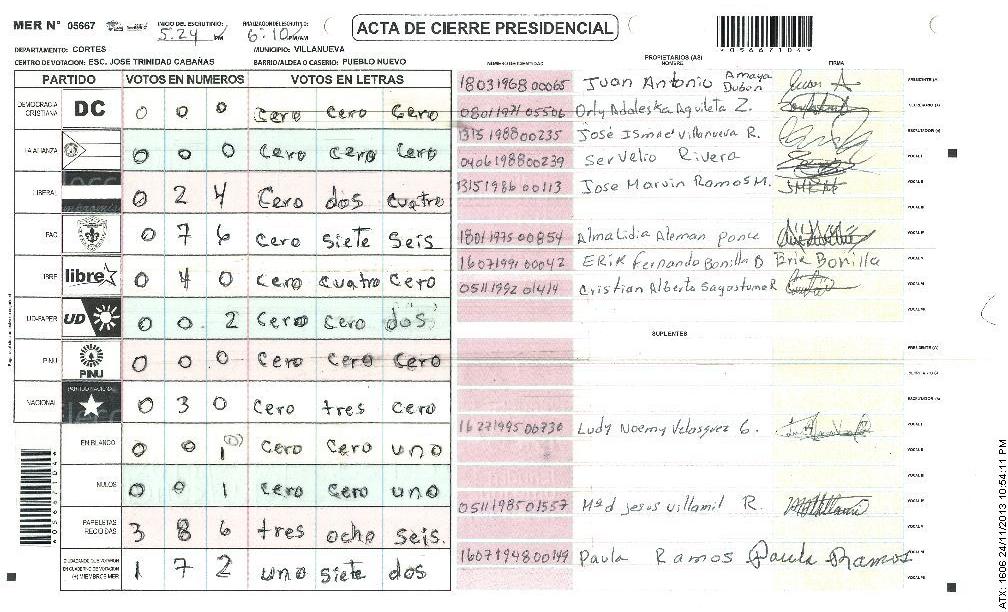 MER N° 05667
INICIO DEL ESCRUTINIO: 5:24 PM
FINALIZACION DEL ESCRUTINIO: 6:10 PM/AM
ACTA DE CIERRE PRESIDENCIAL
*05667104*
DEPARTAMENTO: CORTES
MUNICIPIO: VILLANUEVA
CENTRO DE VOTACION: ESC. JOSE TRINIDAD CABAÑAS
BARRIO/ALDEA O CASERIO: PUEBLO NUEVO
PARTIDO VOTOS EN NUMEROS VOTOS EN LETRAS
DEMOCRACIA CRISTIANA DC 0 0 0 Cero cero Cero
LA ALIANZA 0 0 0 Cero Cero Cero
LIBERAL 0 2 4 Cero dos cuatro
PAC 0 7 6 Cero siete seis
LIBRE libre 0 4 0 Cero cuatro Cero
UD-FAPER UD 0 0 2 Cero Cero dos
PINU PINU 0 0 0 Cero Cero Cero
NACIONAL PARTIDO NACIONAL 0 3 0 Cero tres cero
EN BLANCO 0 0 1 Cero Cero uno
NULOS 0 0 1 Cero Cero uno
PAPELETAS RECIBIDAS 3 8 6 tres ocho seis.
CIUDADANOS QUE VOTARON EN CUADERNO DE VOTACION (+) MIEMBROS MER 1 7 2 uno siete dos
*05667104*
PROPIETARIOS (AS)
NUMERO DE IDENTIDAD NOMBRE FIRMA
1803196800065 Juan Antonio Amaya Dubon PRESIDENTE (A)
0801197105506 Orly Adaleska Aguileta Z. SECRETARIO (A)
1315198800235 José Ismael Villanueva R. ESCRUTADOR (A)
0406198800239 Servelio Rivera VOCAL I
1315198600113 Jose Marvin Ramos M. VOCAL II
VOCAL III
1801197500854 Alma Lidia Aleman Ponce VOCAL IV
1607199100042 Erik Fernando Bonilla B Erik Bonilla VOCAL V
0511199201414 Cristian Alberto Sagastume R VOCAL VI
VOCAL VII
SUPLENTES
PRESIDENTE (A)
SECRETARIO (A)
ESCRUTADOR (A)
1627199500730 Ludy Noemy Velasquez G. VOCAL I
VOCAL II
VOCAL III
0511198501557 Mª d Jesus Villamil R. VOCAL IV
VOCAL V
1607194800149 Paula Ramos Paula Ramos VOCAL VI
VOCAL VII
ATX: 1606 24/11/2013 10:54:11 PM